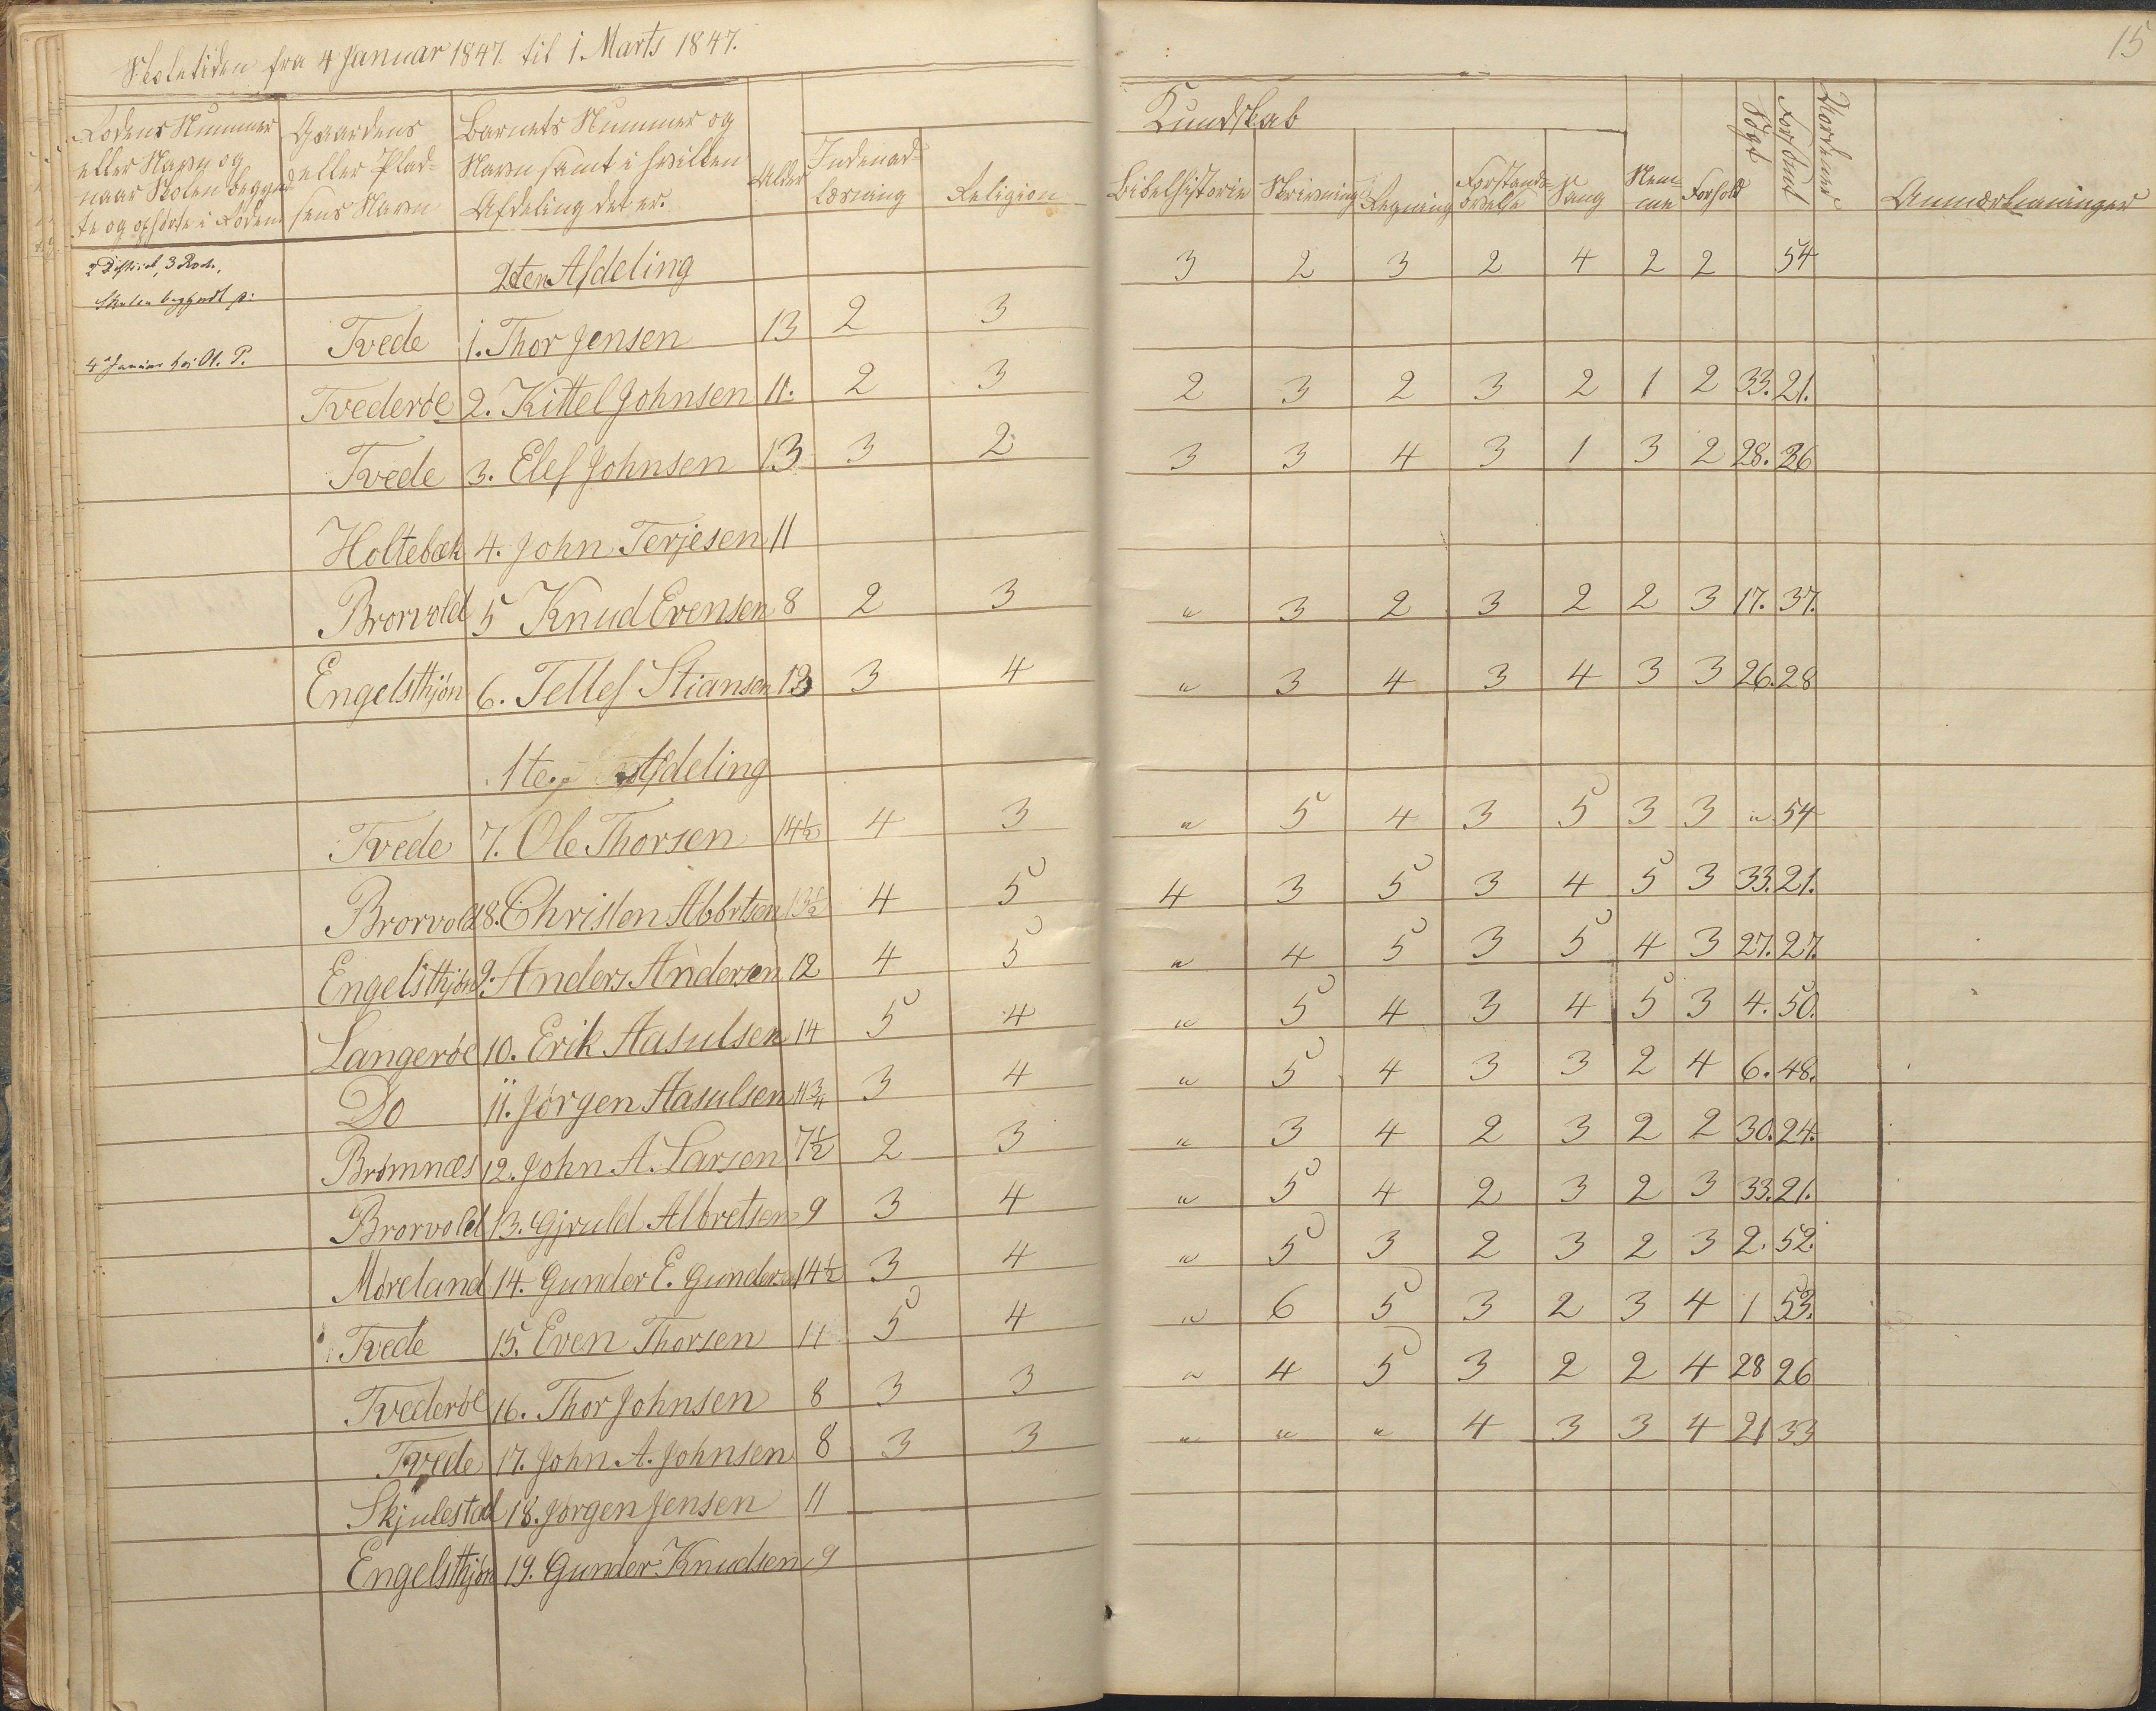 Skoletiden fra 4 Januar 1847. til 1. Marts 1847.
15
Rodens Nummer eller Navn og naar Skolen begyndte og ophørte i Roden
Gaardens eller Pladsens Navn
Barnets Nummer og Navn samt i hvilken Afdeling det er.
Alder
Indenadlæsning
Religion
Kundskab
Bibelhistorie
Skrivning
Regning
Forstandsøvelse
Sang
Nemme
Forhold
Søgt
Forsømt
Anmærkninger
2 District, 3 Rode,
Skolen begyndt
2den Afdeling
3 2 3 2 4 2 2 54
Tvede 1. Thor Jensen 13 2 3
4 Januar hos
Tvederøe 2. Kittel Johnsen 11. 2 3 2 3 2 3 2 1 2 33. 21.
Tvede 3. Elef Johnsen 13 3 2 3 3 4 3 1 3 2 28. 26
Holtebæk 4. John Terjesen 11
Brorvold 5 Knud Evensen 8 2 3 " 3 2 3 2 2 3 17. 37.
Engelsthjøn 6. Tellef Stiansen 13 3 4 " 3 4 3 4 3 3 26. 28
1te Afdeling
Tvede 7. Ole Thorsen 14½ 4 3 " 5 4 3 5 3 3 " 54
Brorvold 8. Christen Abbrtsen 13½ 4 5 4 3 5 3 4 5 3 33. 21.
Engelsthjøn 9. Anders Andersen 12 4 5 " 4 5 3 5 4 3 27. 27.
Langerøe 10. Erik Aasulsen 14 5 4 " 5 4 3 4 5 3 4. 50.
Do 11. Jørgen Aasulsen 11¾ 3 4 " 5 4 3 3 2 4 6. 48.
Brømnæs 12. John A. Larsen 7½ 2 3 " 3 4 2 3 2 2 30. 24.
Brorvold 13. Gjruld Albretsen 9 3 4 " 5 4 2 3 2 3 33. 21.
Møreland 14. Gunder E. Gunders 14½ 3 4 " 5 3 2 3 2 3 2. 52.
Tvede 15. Even Thorsen 11 5 4 " 6 5 3 2 3 4 1 53.
Tvederøe 16. Thor Johnsen 8 3 3 " 4 5 3 2 2 4 28 26
Tvede 17. John A. Johnsen 8 3 3 " " " 4 3 3 4 21 33
Skjulestad 18. Jørgen Jensen 11
Engelsthjøn 19. Gunder Knudsen 9